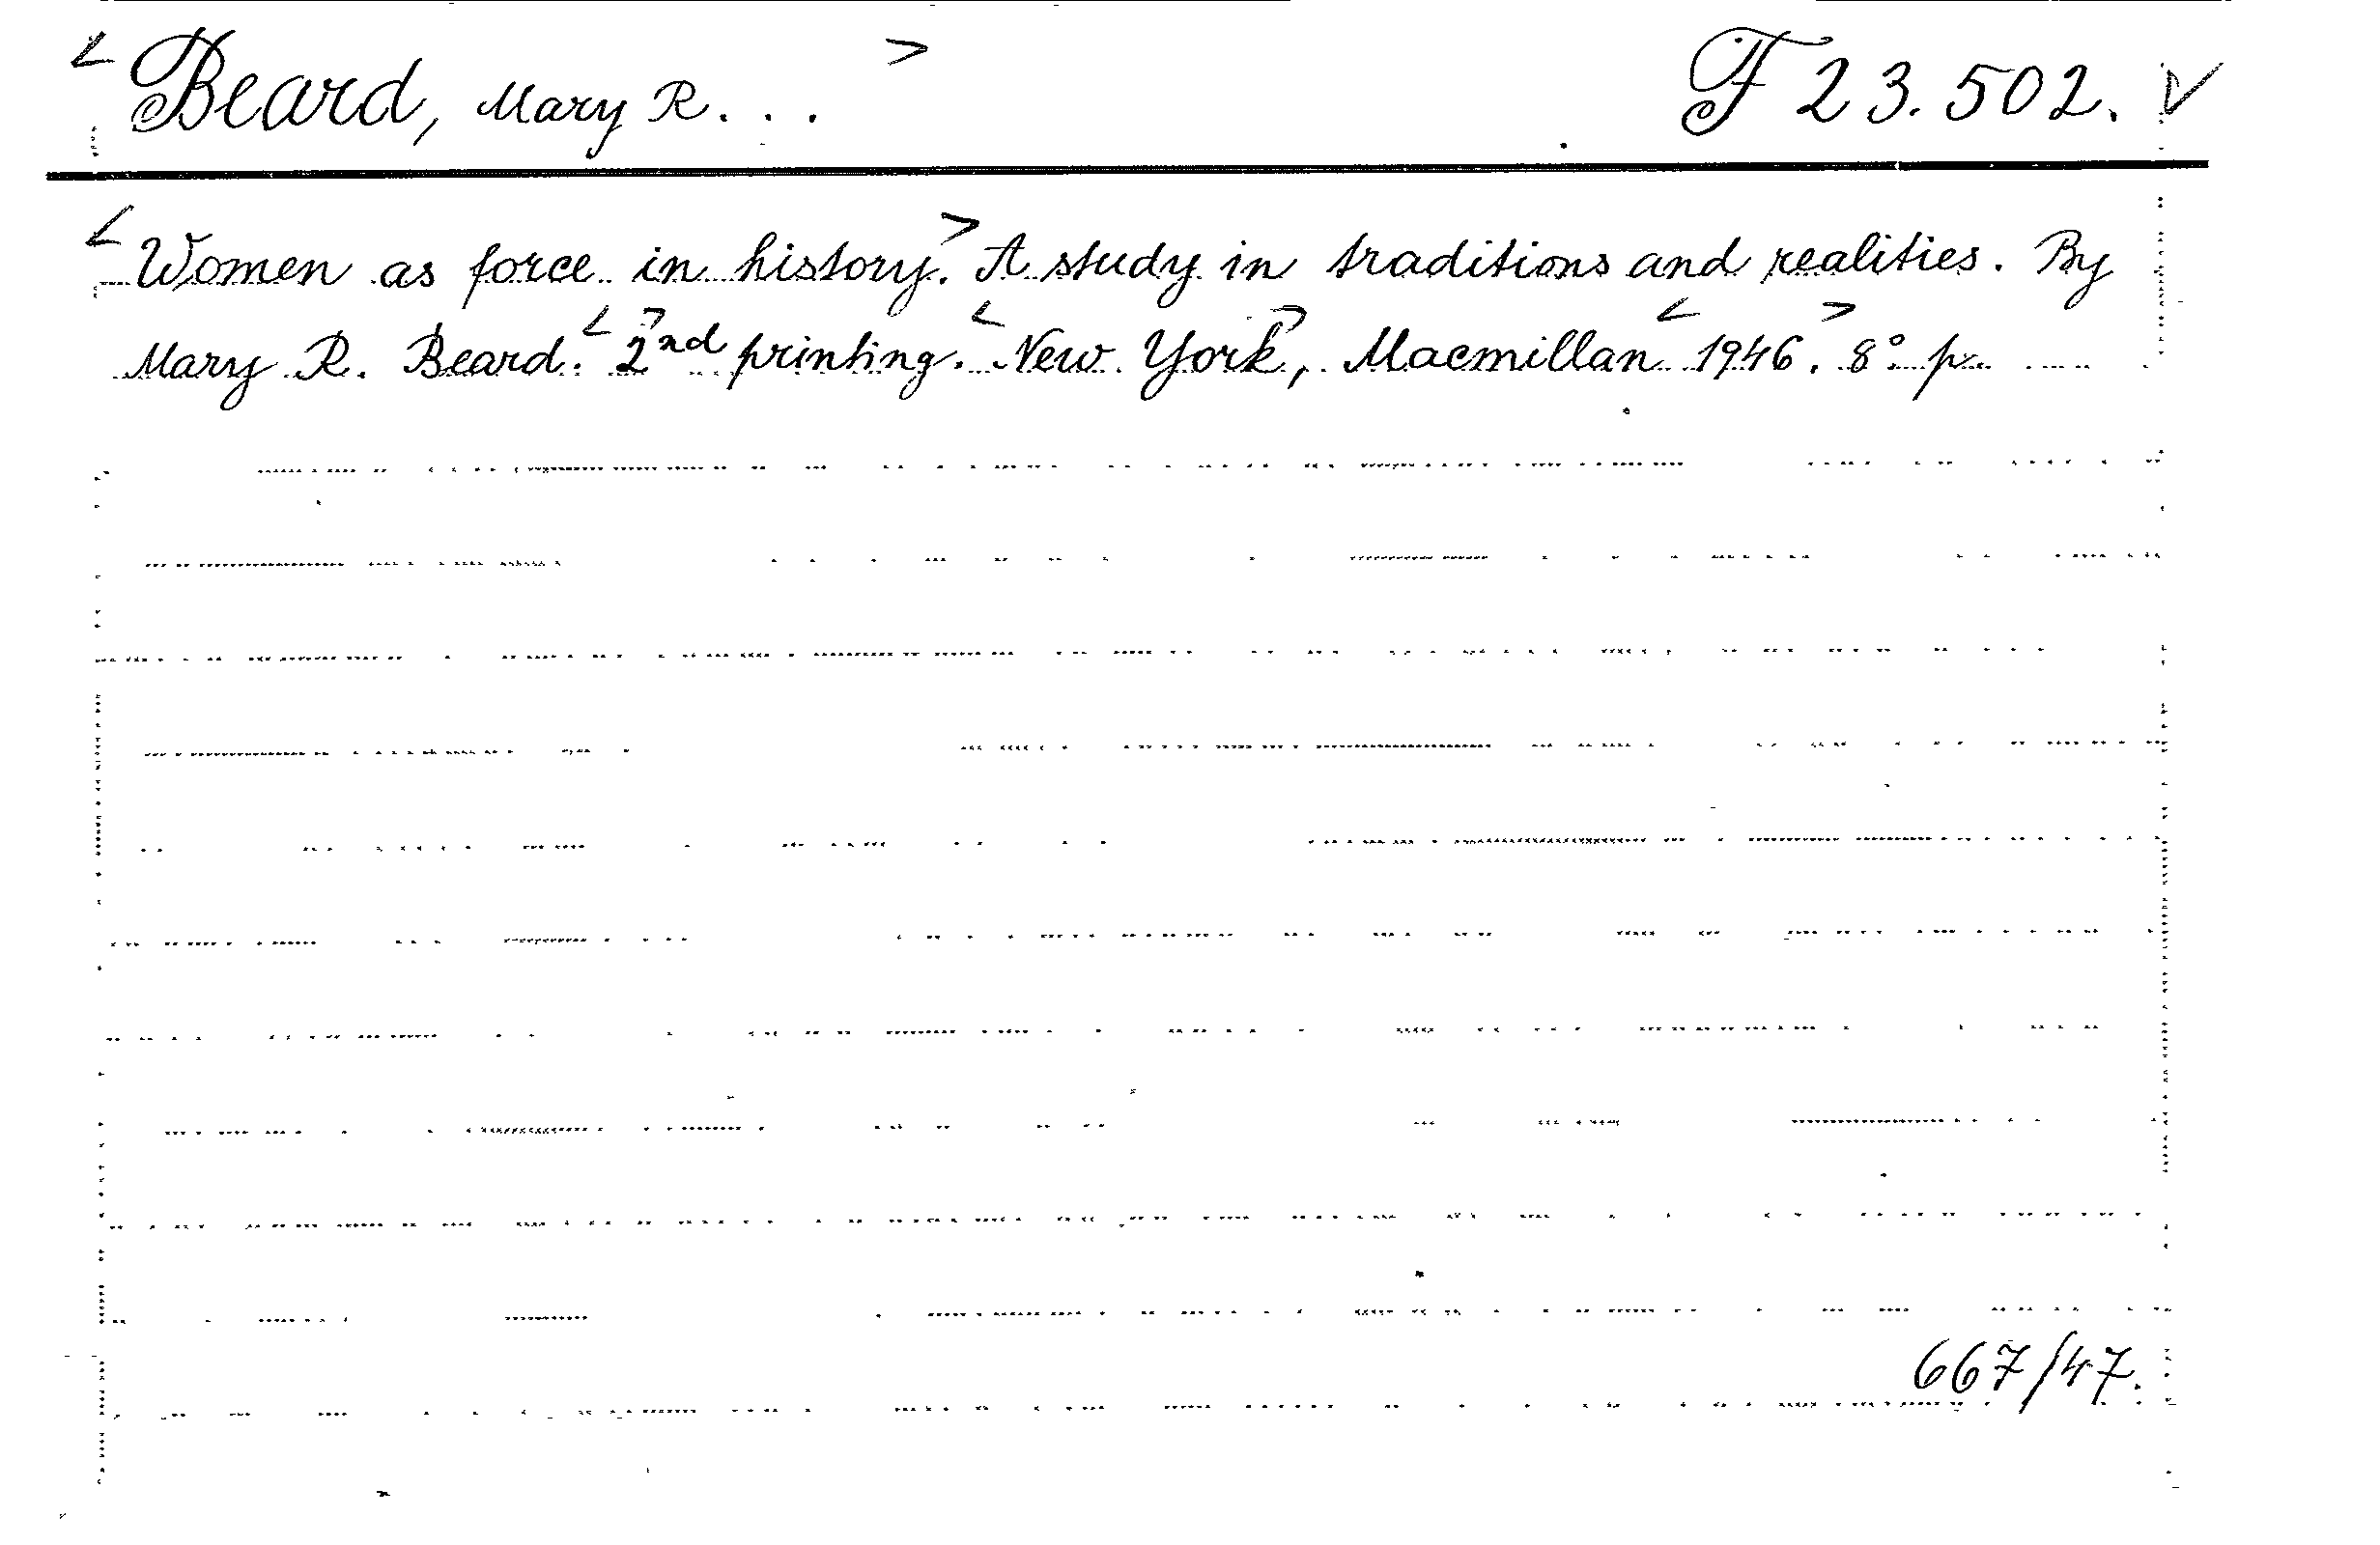 < Beard, Mary R. . . > F 23.502. √
< Women as force in history. > A study in traditions and realities. By
Mary R. Beard. < 2nd > printing. < New York >, Macmillan < 1946. > 8° p.
667/47.